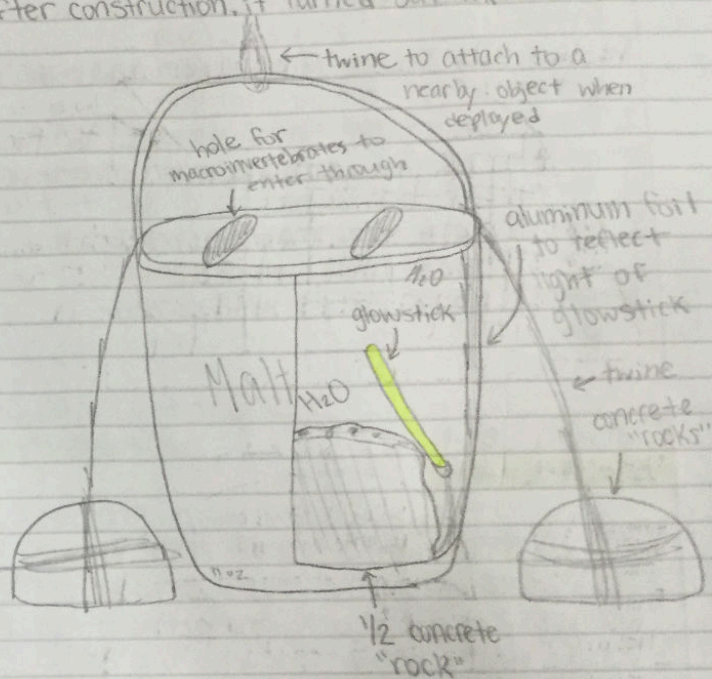 fter construction, it turned out
twine to attach to a
nearby object when
deployed
hole for
macroinvertebrates to
enter through
aluminum foil
to reflect
light of
glowstick
H2O
glowstick
Malt
H2O
twine
concrete
"rocks"
11 oz
1/2 concrete
"rock"